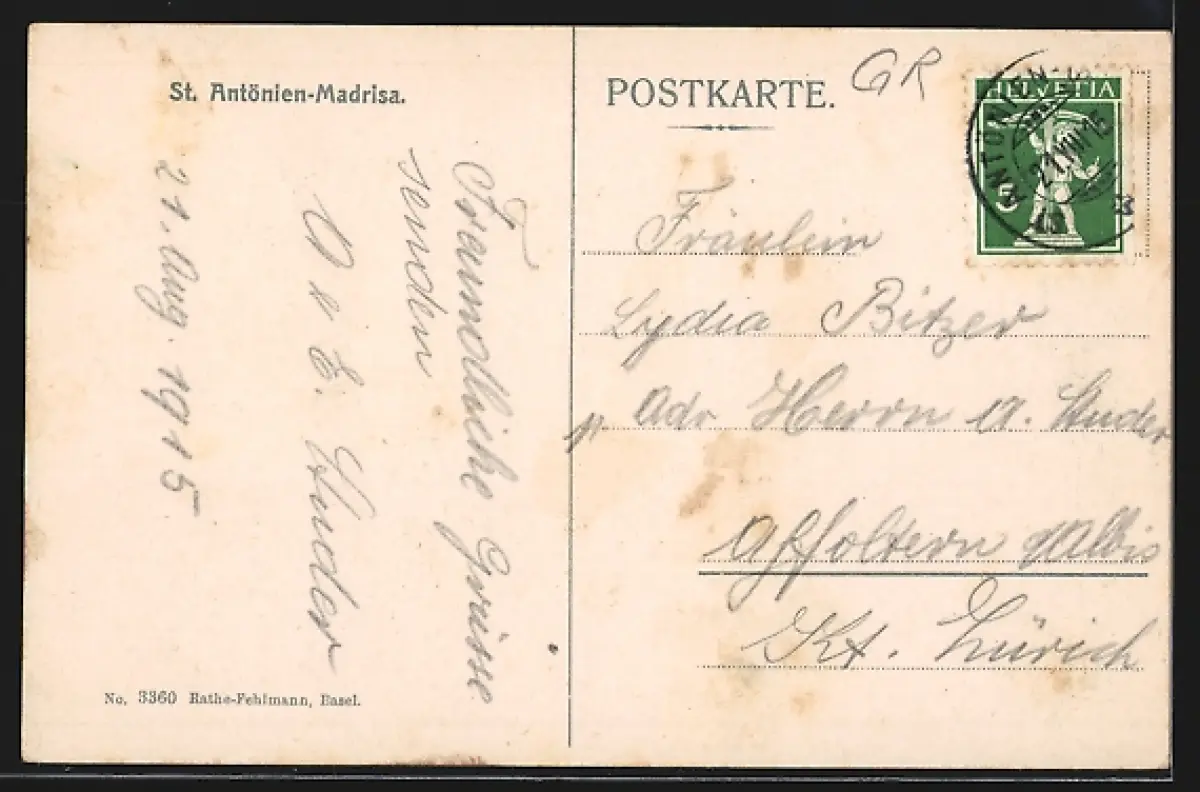 St. Antönien-Madrisa.
Freundliche Grüsse
senden
E. Studer
21. Aug. 1915
No. 3360 Rathe-Fehlmann, Basel.
POSTKARTE.
GR
HELVETIA
5
21.VIII.15
Fräulein
Lydia Bitzer
Adr Herrn A. Studer
Affoltern a/Albis
Kt. Zürich